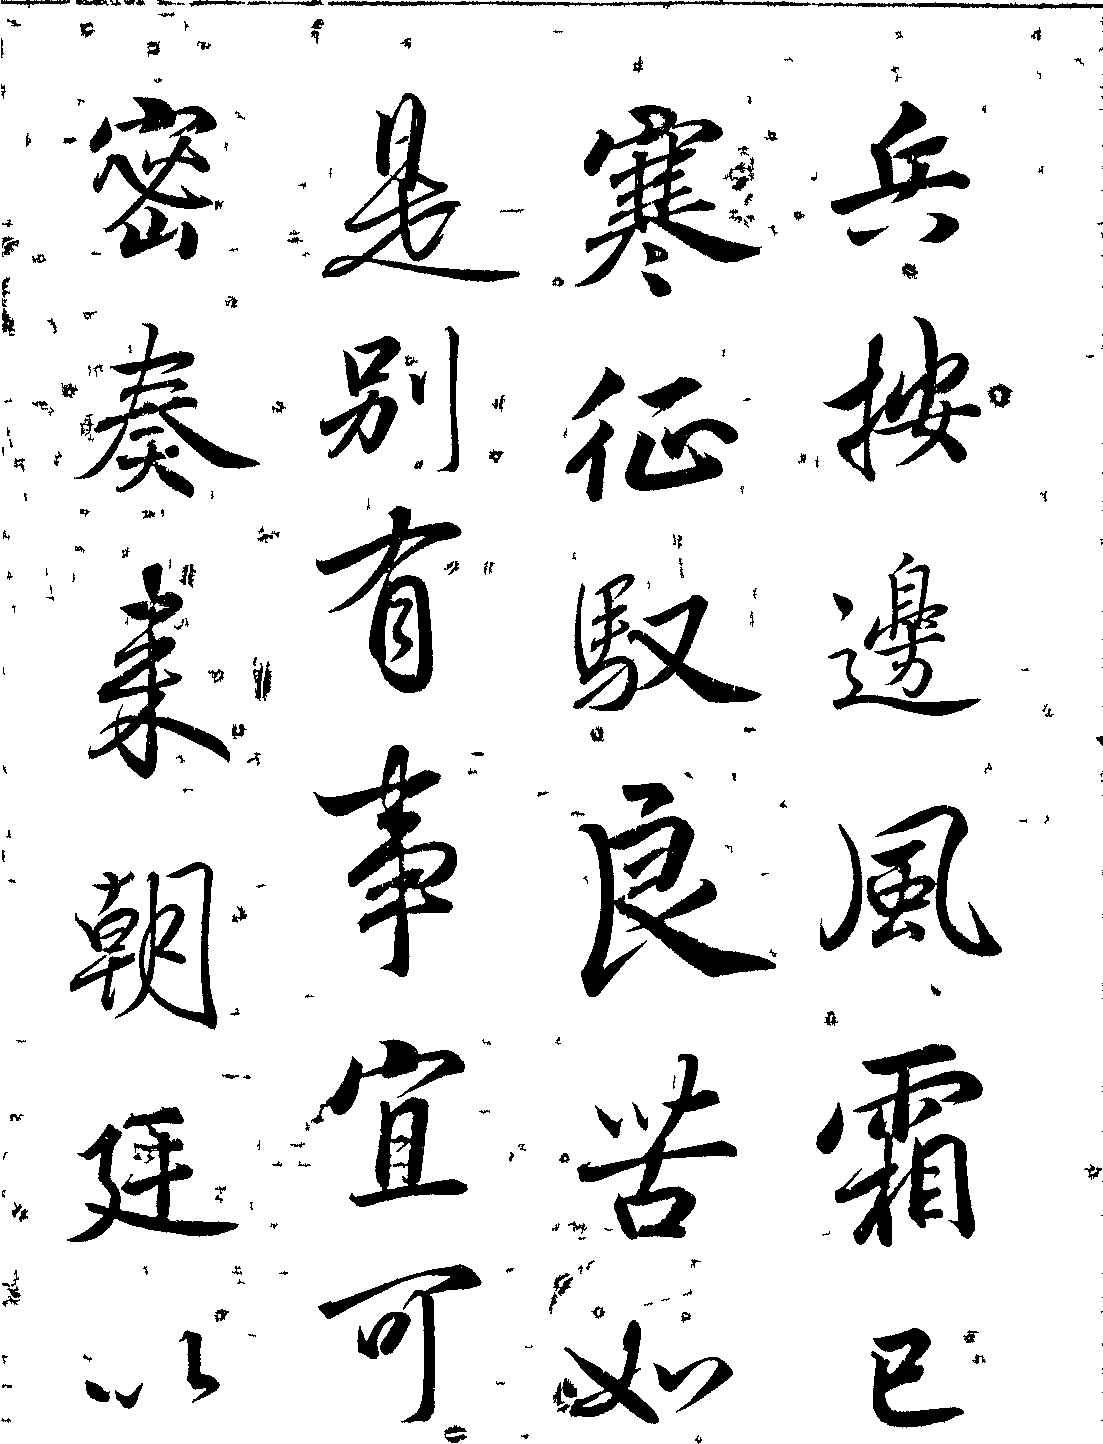 兵按邊風霜已
寒征馭良苦如
是別有事宜可
密奏來朝廷以